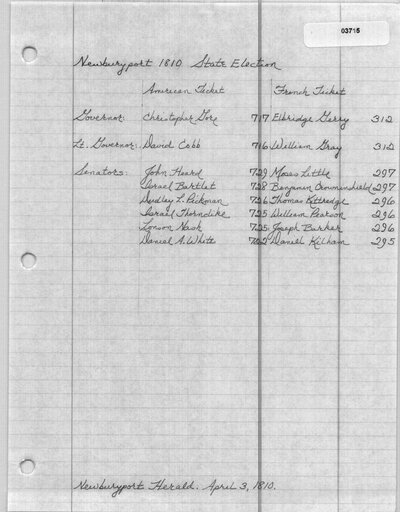 03715
Newburyport 1810 State Election
American Ticket French Ticket
Governor: Christopher Gore 717 Elbridge Gerry 312
Lt. Governor: David Cobb 716 William Gray 312
Senators: John Heard 729 Moses Little 297
Israel Bartlet 728 Benjamin Crowninshield 297
Dudley L. Pickman 726 Thomas Kittredge 296
Israel Thorndike 725 William Pearson 296
Lonson Nash 725 Joseph Barker 296
Daniel A. White 722 Daniel Kilham 295
Newburyport Herald: April 3, 1810.